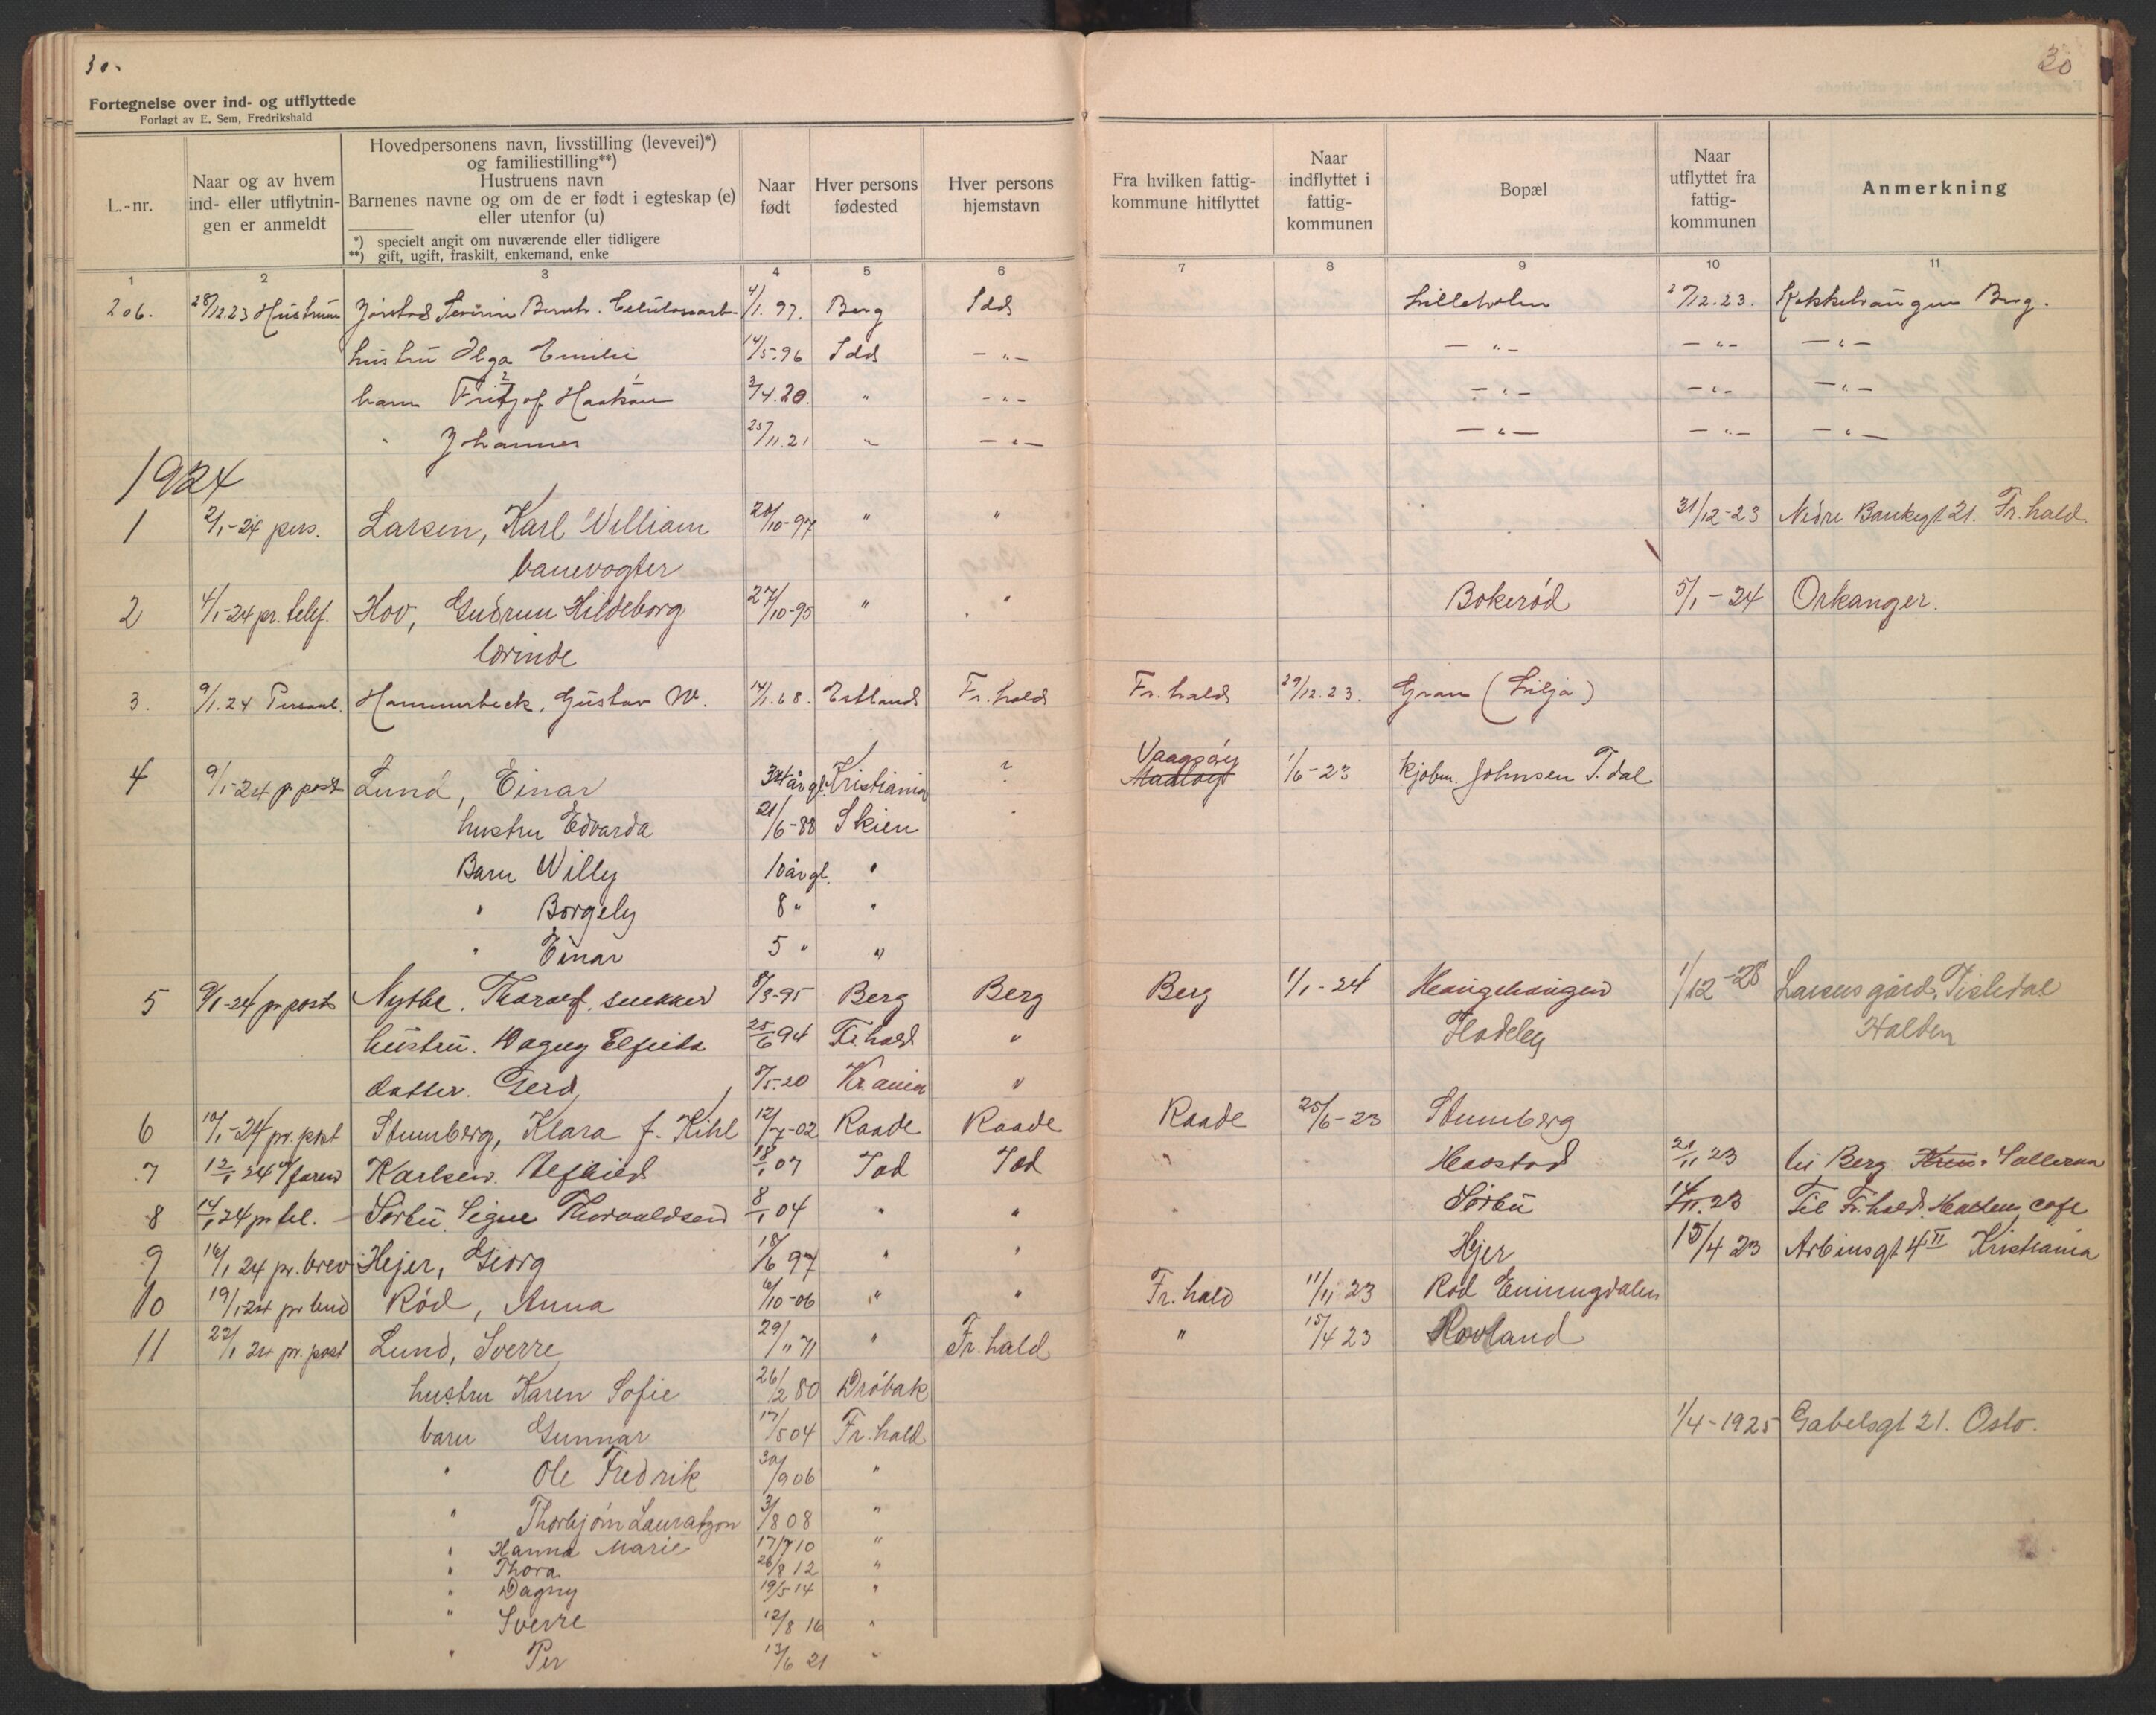 30.
30
Fortegnelse over ind- og utflyttede
Forlagt av E. Sem, Fredrikshald
L.-nr. | Naar og av hvem ind- eller utflytningen er anmeldt | Hovedpersonens navn, livsstilling (levevei)*) og familiestilling**) Hustruens navn Barnenes navne og om de er født i egteskap (e) eller utenfor (u) *) specielt angit om nuværende eller tidligere **) gift, ugift, fraskilt, enkemand, enke | Naar født | Hver persons fødested | Hver persons hjemstavn | Fra hvilken fattigkommune hitflyttet | Naar indflyttet i fattigkommunen | Bopæl | Naar utflyttet fra fattigkommunen | Anmerkning
1 2 3 4 5 6 7 8 9 10 11
206. 28/12.23 Hustruen 4/1.97. Berg Idd Lilleholm 27/12.23. Berg.
hustru Olga Emilie 14/5.96 Idd -"- -"- -"- -"-
barn Fritjof Haakon 3/4.20. " -"- -"- -"- -"-
" Johannes 25/11.21 " -"- -"- -"- -"-
1924
1 2/1-24 pers. Larsen, Karl William 20/10-97 " " 31/12-23 Nedre Bankegt. 21. Fr.hald
banevogter
2 4/1-24 pr. telef. Hov, Gudrun Hildeborg 27/10-95 " " Bokerød 5/1-24 Orkanger.
lærinde
3. 9/1.24 Personl. Hammerbeck, Gustav W. 14/1.68. Estland Fr.hald Fr.hald 29/12.23. Gran (Lilja)
Vaagsøy
4 9/1-24 p. post Lund, Einar 34 år gl. Kristiania ? 1/6-23 kjøbm. Johnsen T.dal
hustru Edvarda 21/6-88 Skien "
Barn Willy 10 år gl. "
" Borgely 8 " "
" Einar 5 " "
5 9/1-24 pr post Nythe. Thoralf. snekker 8/3-95 Berg Berg Berg 1/1-24 1/12-28 Larsens gård, Tistedal
hustru. Dagny Elfrida 25/6 94 Fr.hald " Flateby Halden
datter. Gerd, 8/5-20 Kr.ania "
6 10/1-24 pr. post Stumberg, Klara f. Kihl 12/7-02 Raade Raade Raade 25/6-23 Stumberg
7 12/1 24 faren Karlsen. 18/1 07 Idd Idd " Haastad 21/11 23 til Berg
8 14/1 24 pr tel. Sørbu, Signe Thorvaldsen 8/1 04 " " " Sørbu 14/11.23 Til Fr.hald. cafe
9 16/1 24 pr. brev Hejer, Georg 18/6 97 " " Hjer 15/4 23 Arbinsgt 4 II Kristiania
10 19/1 24 pr bud Rød, Anna 6/10-06 " " Fr.hald 11/11 23 Rød Enningdalen
11 22/1 24 pr. post Lund, Sverre 29/11 71 " Fr.hald " 15/4 23 Rovland
hustru Karen Sofie 26/2 80 Drøbak
barn Gunnar 17/5 04 Fr.hald 1/4-1925 Gabelsgt 21. Oslo.
" Ole Fredrik 30/9 06 "
" Thorbjørn Lauratzon 3/8 08 "
" Hanna Marie 17/7 10 "
" Thora 26/8 12 "
" Dagny 19/5 14 "
" Sverre 12/8 16 "
" Per 13/6 21 "